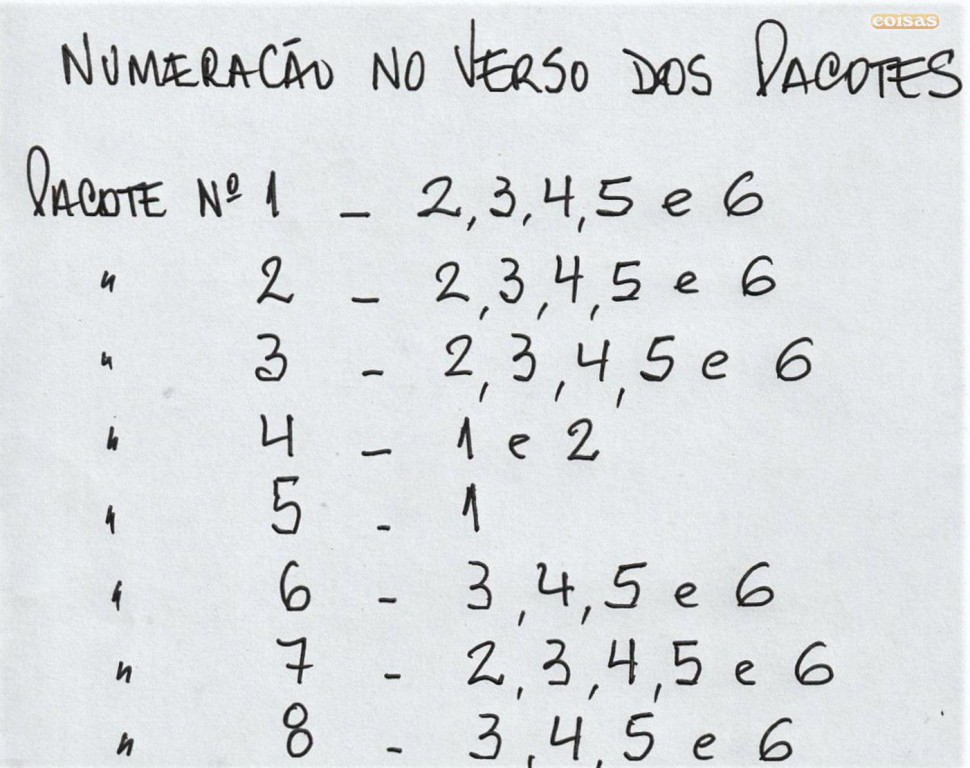 coisas
NUMERAÇÃO NO VERSO DOS PACOTES
PACOTE Nº 1 - 2,3,4,5 e 6
" 2 - 2,3,4,5 e 6
" 3 - 2,3,4,5 e 6
" 4 - 1 e 2
" 5 - 1
" 6 - 3,4,5 e 6
" 7 - 2,3,4,5 e 6
" 8 - 3,4,5 e 6